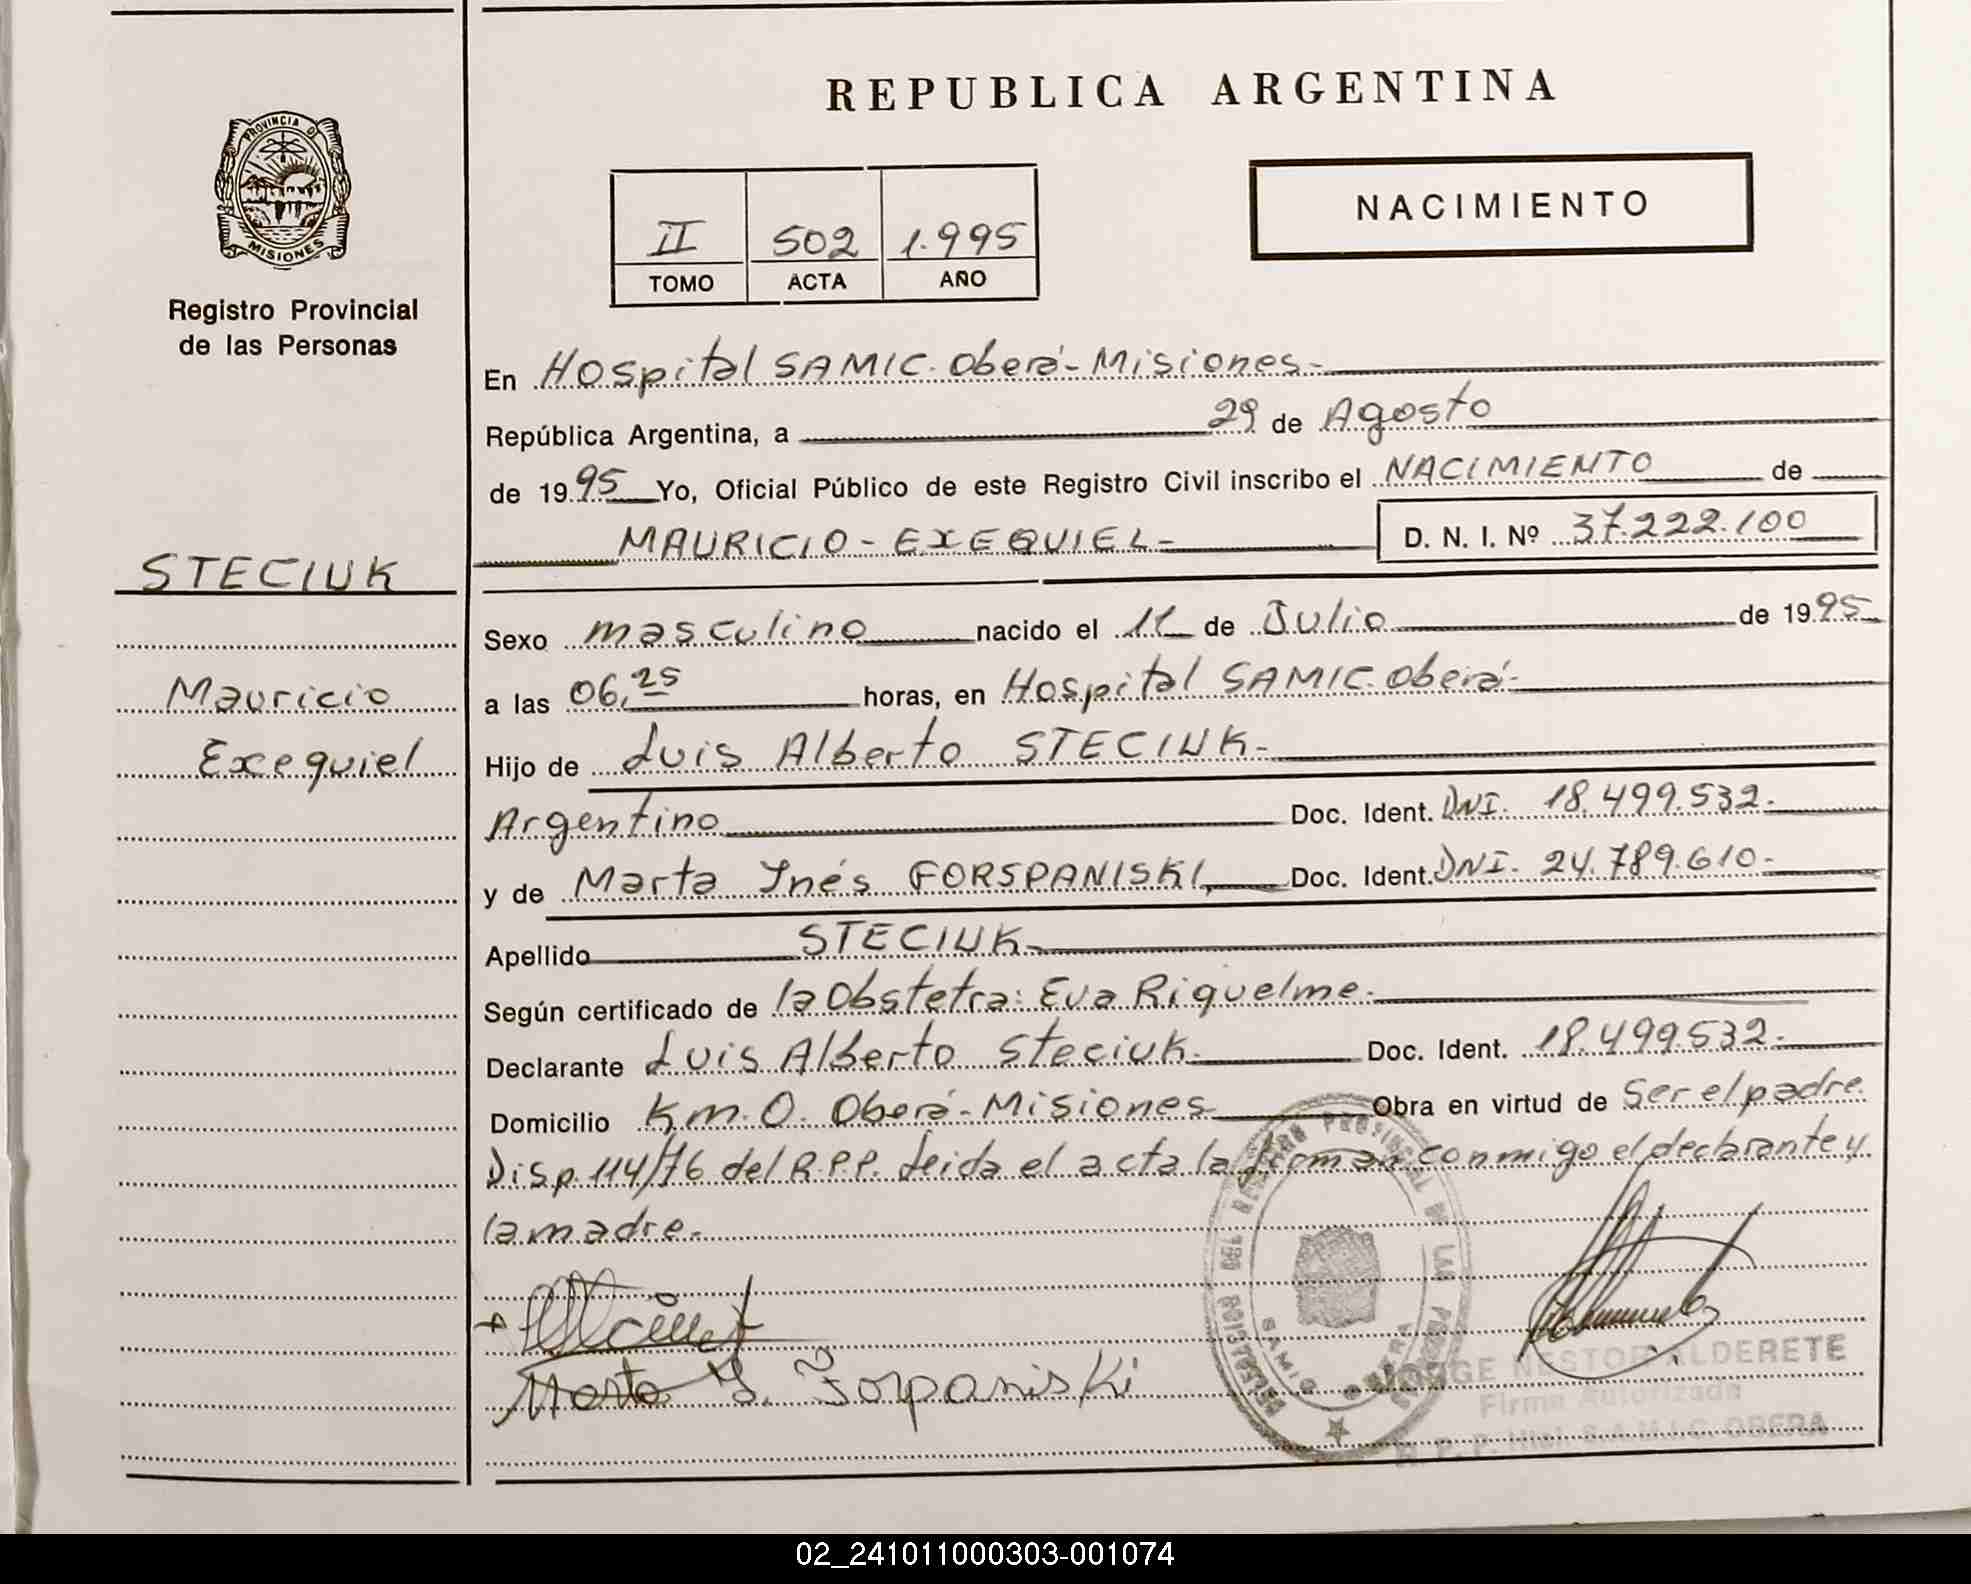 REPUBLICA ARGENTINA
PROVINCIA DE
MISIONES
Registro Provincial
de las Personas
II 502 1.995
TOMO ACTA AÑO
NACIMIENTO
STECIUK
Mauricio
Exequiel
En Hospital SAMIC. Oberá-Misiones.-
República Argentina, a 29 de Agosto
de 1995 Yo, Oficial Público de este Registro Civil inscribo el NACIMIENTO de
MAURICIO - EXEQUIEL- D. N. I. Nº 37.222.100
Sexo masculino nacido el 11 de Julio de 1995
a las 06,25 horas, en Hospital SAMIC. Oberá.-
Hijo de Luis Alberto STECIUK.-
Argentino Doc. Ident. DNI. 18.499.532.-
y de Marta Inés FORSPANISKI, Doc. Ident. DNI. 24.789.610.-
Apellido STECIUK.
Según certificado de la Obstetra: Eva Riquelme.
Declarante Luis Alberto Steciuk. Doc. Ident. 18.499.532.-
Domicilio Km. 0. Oberá-Misiones Obra en virtud de Ser el padre.
Disp. 114/76 del R.P.P. Leida el acta la firman conmigo el declarante y
la madre.-
Marta I. Forpaniski
JORGE NESTOR ALDERETE
Firma Autorizada
R. P. P. Htal. S.A.M.I.C. OBERA
02_241011000303-001074